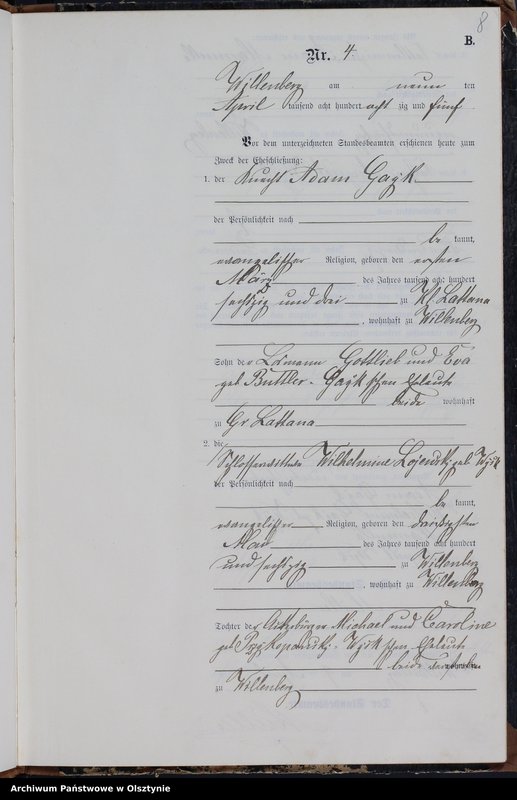 8
B.
Nr. 4
Willenberg am neun ten
April tausend acht hundert acht zig und fünf
Vor dem unterzeichneten Standesbeamten erschienen heute zum
Zweck der Eheschließung:
1. der Knecht Adam Gayk
der Persönlichkeit nach
be kannt,
evangelischer Religion, geboren den ersten
März des Jahres tausend acht hundert
sechzig und drei zu Kl Lattana
, wohnhaft zu Willenberg
Sohn der Gottlieb und Eva
geb Buttler, Gayk schen Eheleute
beide wohnhaft
zu Gr. Lattana
2. die
Wilhelmine geb
der Persönlichkeit nach
be kannt,
evangelischer Religion, geboren den dreißigsten
Mai des Jahres tausend acht hundert
und sechzig zu Willenberg
, wohnhaft zu Willenberg
Tochter der Ackerbürger Michael und Caroline
geb schen Eheleute
beide
zu Willenberg
Archiwum Państwowe w Olsztynie